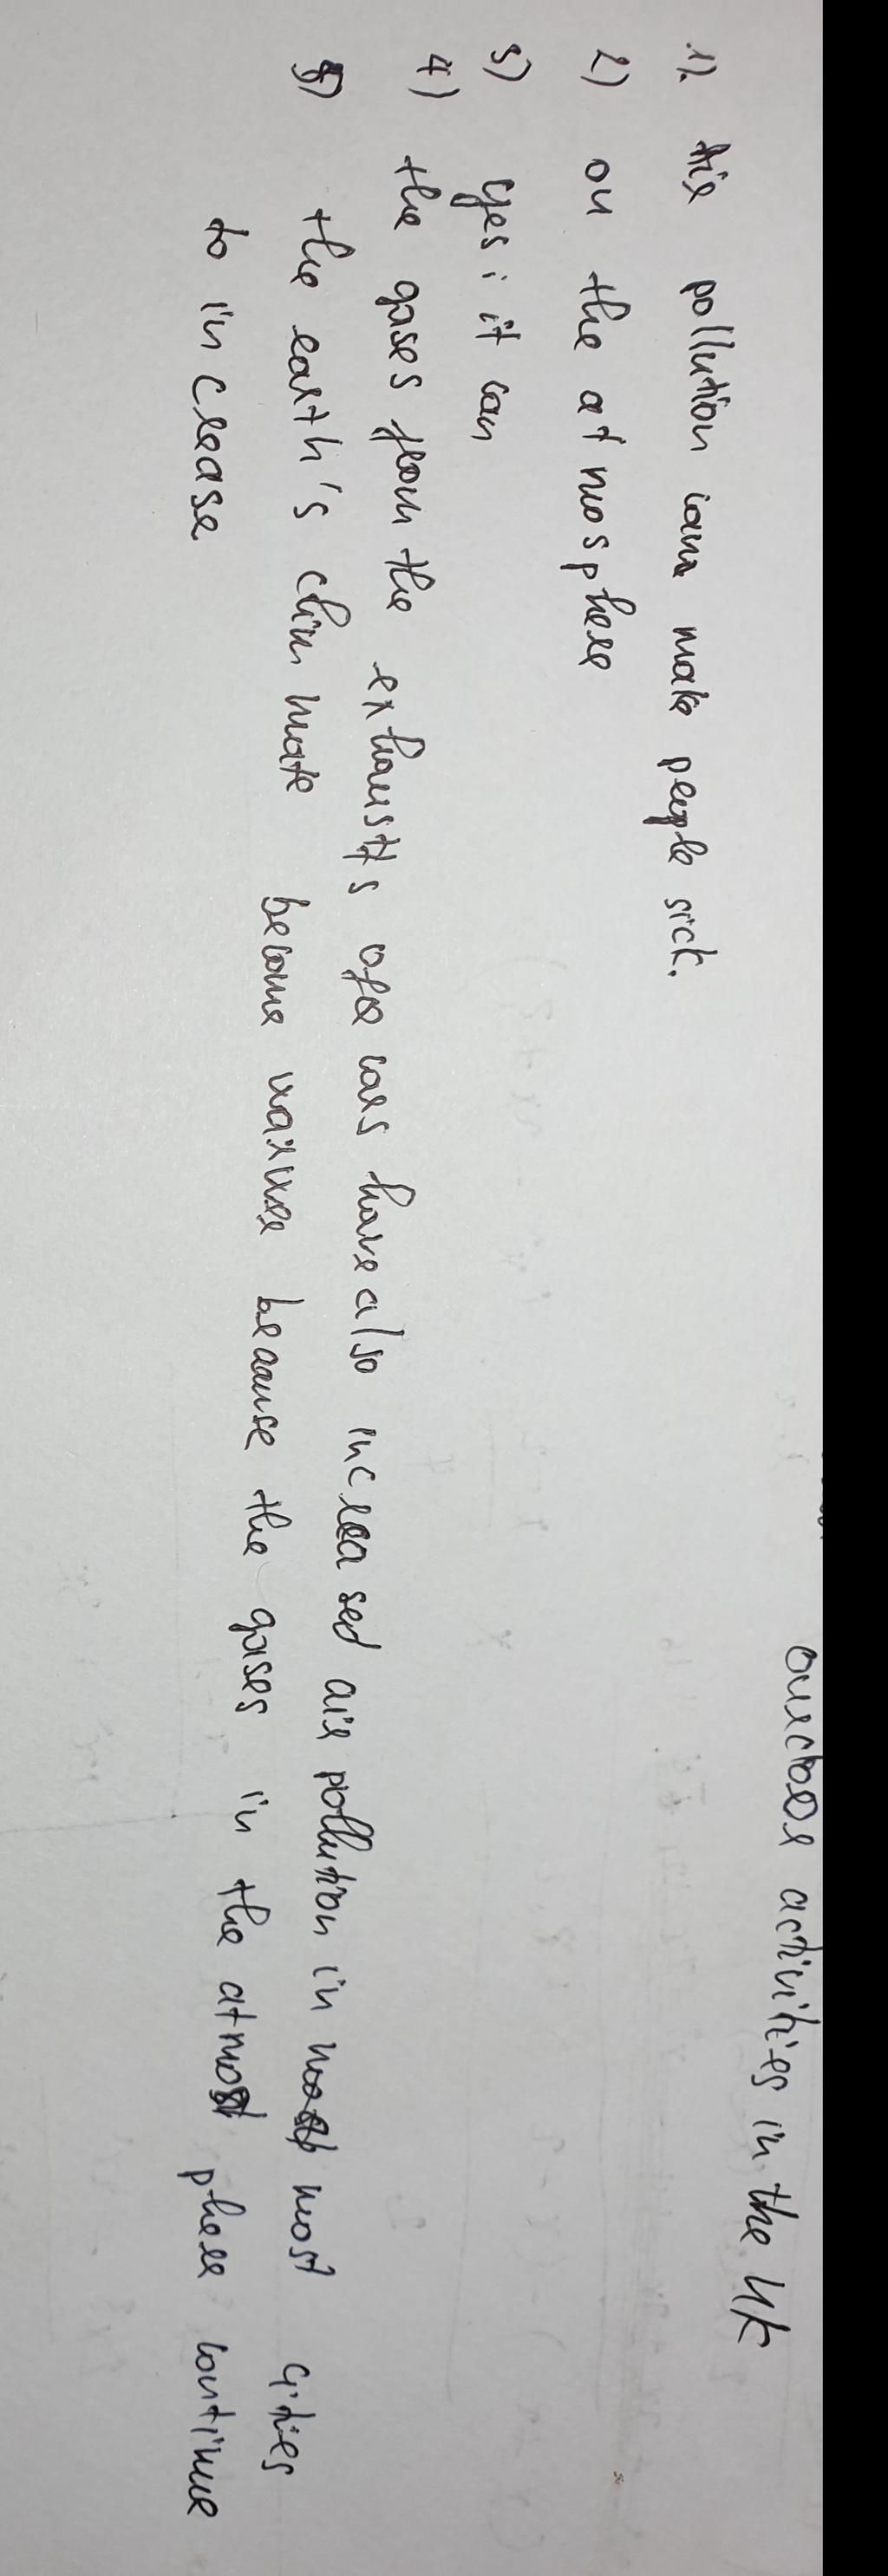 outdoor activities in the UK
1). Air pollution can make people sick.
2) on the atmosphere
3) yes, it can
4) the gases from the exhausts of cars have also increased air pollution in most cities
5) the earth's climmate become warmer because the gases in the atmosphere continue
to increase